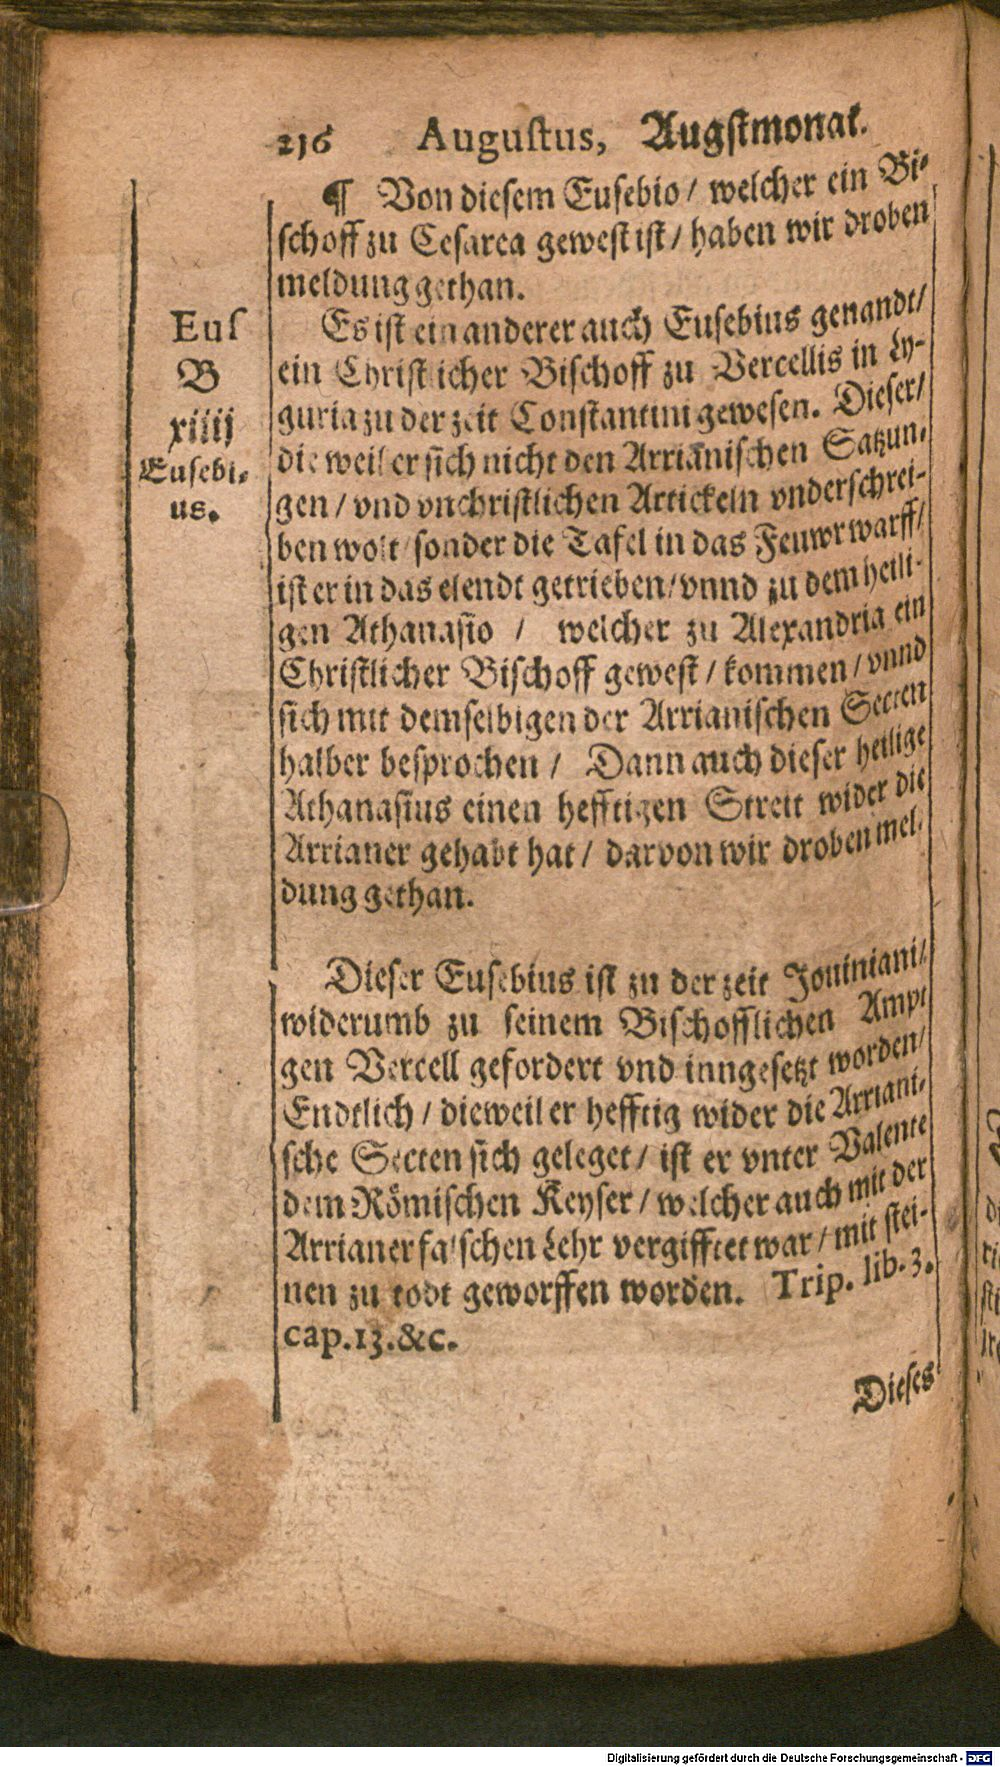 216 Augustus, Augstmonat.
¶ Von diesem Eusebio / welcher ein Bi-
schoff zu Cesarea gewest ist / haben wir droben
meldung gethan.
Eus
B
xiiij
Eusebi-
us.
Es ist ein anderer auch Eusebius genandt /
ein Christlicher Bischoff zu Vercellis in Ly-
guria zu der zeit Constantini gewesen. Dieser /
die weil er sich nicht den Arrianischen Satzun-
gen / vnd vnchristlichen Artickeln vnderschrei-
ben wolt / sonder die Tafel in das Feuwr warff /
ist er in das elendt getrieben / vnnd zu dem heili-
gen Athanasio / welcher zu Alexandria ein
Christlicher Bischoff gewest / kommen / vnnd
sich mit demselbigen der Arrianischen Secten
halber besprochen / Dann auch dieser heilige
Athanasius einen hefftigen Streit wider die
Arrianer gehabt hat / darvon wir droben mel-
dung gethan.
Dieser Eusebius ist zu der zeit Jouiniani /
widerumb zu seinem Bischofflichen Ampt
gen Vercell gefordert vnd inngesetzt worden /
Endtlich / dieweil er hefftig wider die Arriani-
sche Secten sich geleget / ist er vnter Valente
dem Römischen Keyser / welcher auch mit der
Arrianer falschen Lehr vergifftet war / mit stei-
nen zu todt geworffen worden. Trip. lib. 3.
cap. 13. &c.
Dieses
Digitalisierung gefördert durch die Deutsche Forschungsgemeinschaft - DFG